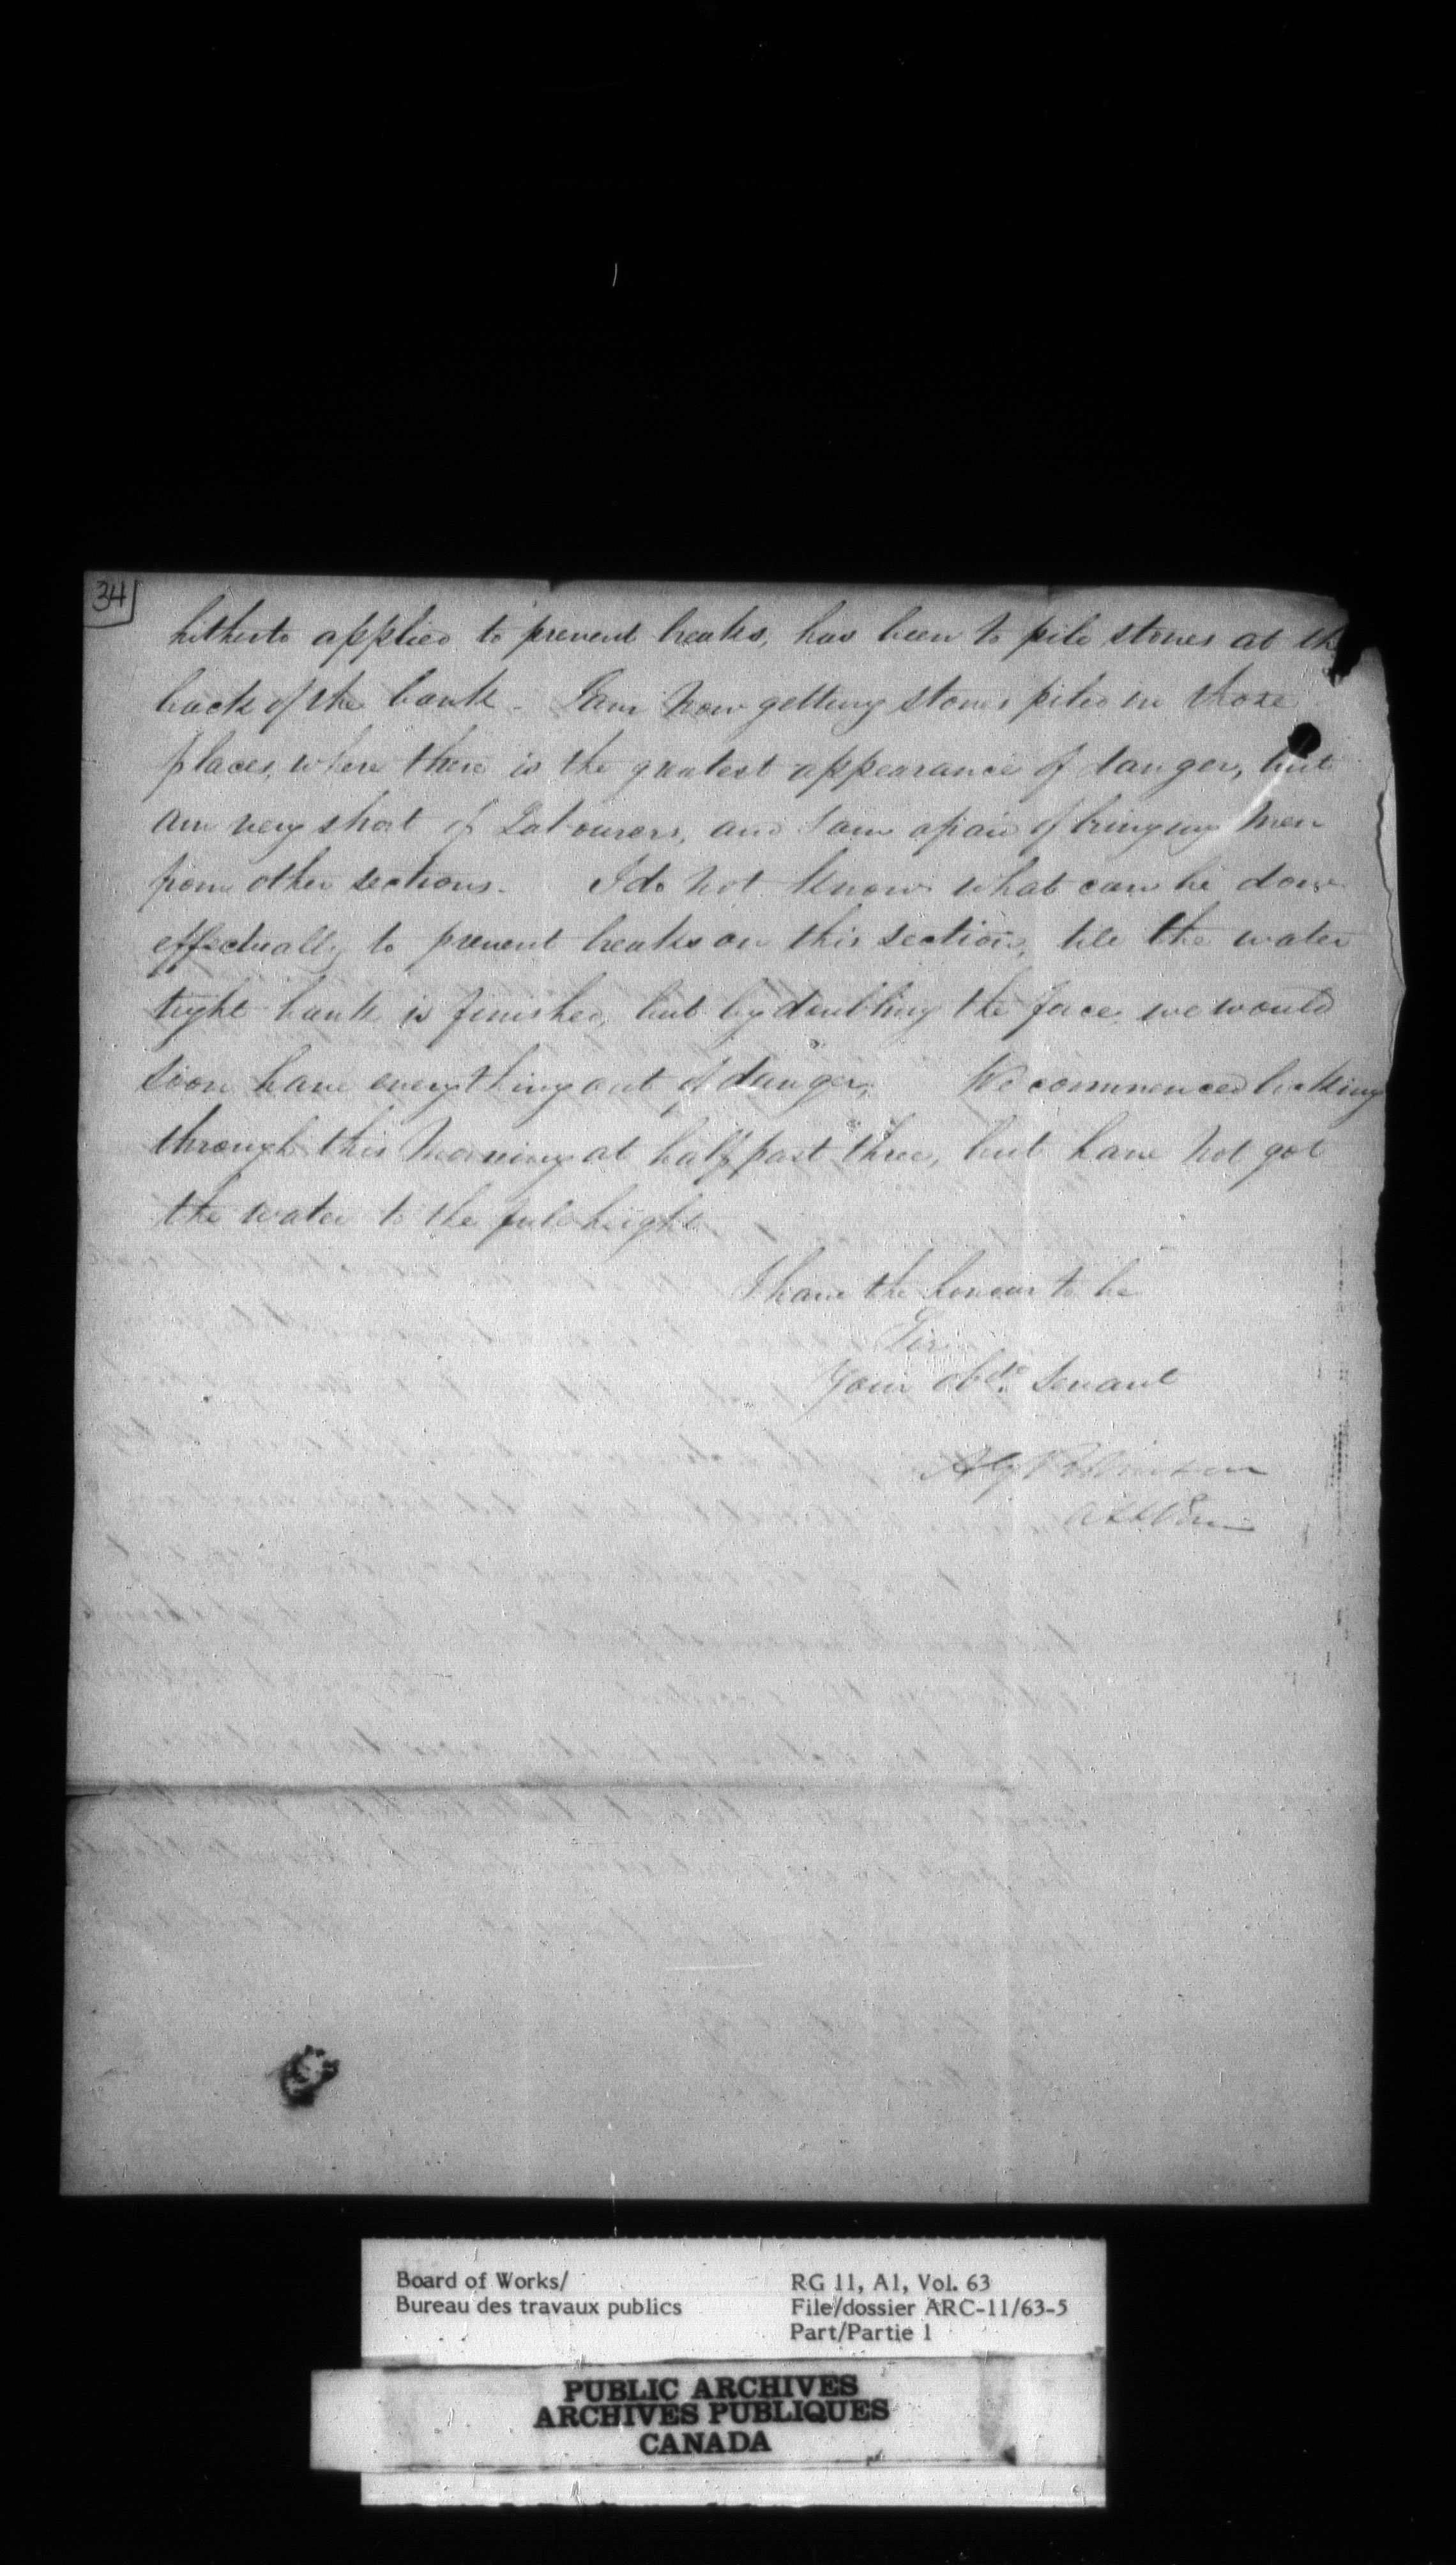 34
hitherto applied to prevent breaks, has been to pile stones at the
back of the bank - I am now getting stones piled in those
places, where there is the greatest appearance of danger, but
am very short of Labourers, and I am afraid of bringing men
from other sections. I do not know what can be done
effectually to prevent breaks on this section, till the water
tight bank is finished, but by doubling the force we would
soon have everything out of danger, We commenced locking
through this morning at half past three, but have not got
the water to the full height
I have the honour to be
Sir
Your obdt. Servant
Robinson
Board of Works/
Bureau des travaux publics
RG 11, A1, Vol. 63
File/dossier ARC-11/63-5
Part/Partie 1
PUBLIC ARCHIVES
ARCHIVES PUBLIQUES
CANADA